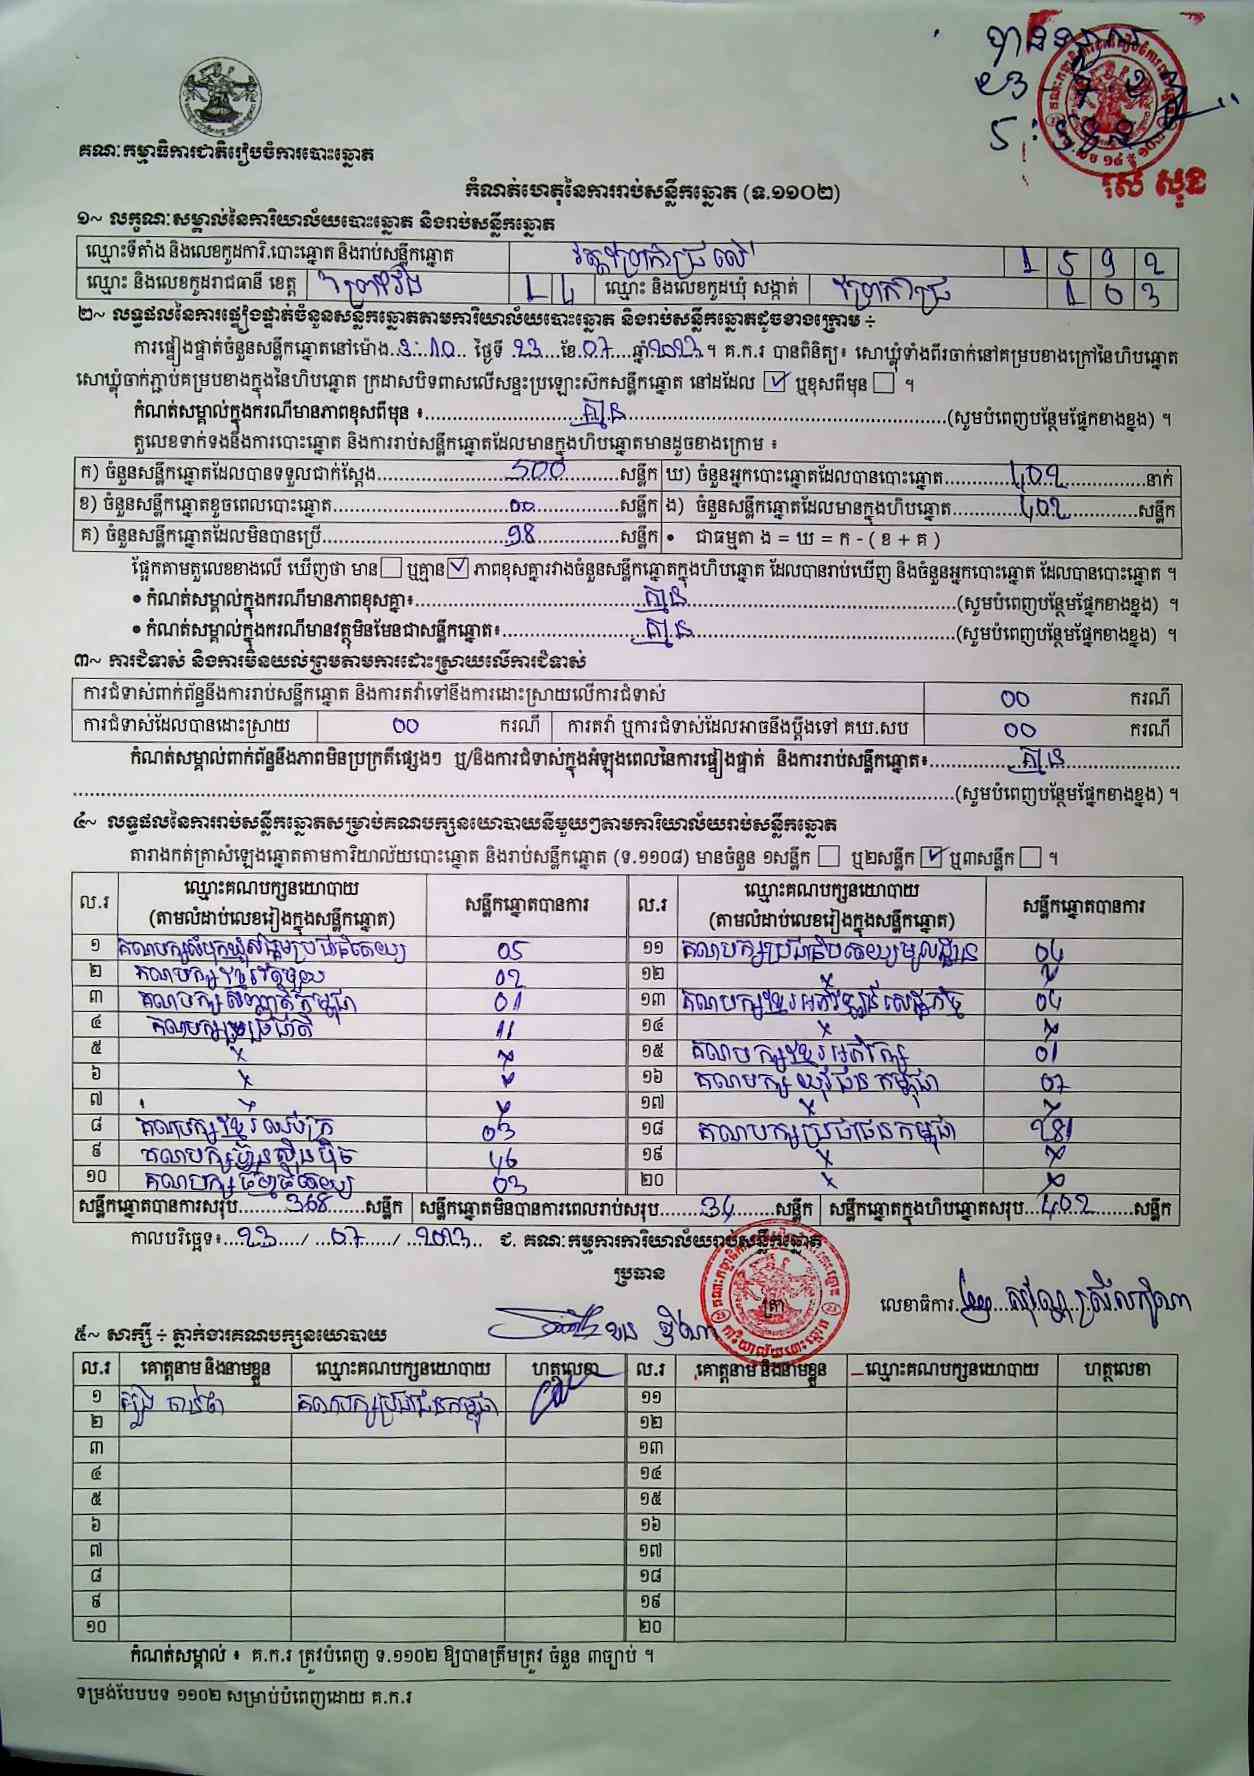 គណៈកម្មាធិការជាតិរៀបចំការបោះឆ្នោត
រស់ សុខ
កំណត់ហេតុនៃការរាប់សន្លឹកឆ្នោត (ទ.១១០២)
១~ លក្ខណៈសម្គាល់នៃការិយាល័យបោះឆ្នោត និងរាប់សន្លឹកឆ្នោត
ឈ្មោះទីតាំង និងលេខកូដការិ.បោះឆ្នោត និងរាប់សន្លឹកឆ្នោត 1 5 9 2
ឈ្មោះ និងលេខកូដរាជធានី ខេត្ត ព្រៃវែង 14 ឈ្មោះ និងលេខកូដឃុំ សង្កាត់ 1 0 3
២~ លទ្ធផលនៃការផ្ទៀងផ្ទាត់ចំនួនសន្លឹកឆ្នោតតាមការិយាល័យបោះឆ្នោត និងរាប់សន្លឹកឆ្នោតដូចខាងក្រោម ÷
ការផ្ទៀងផ្ទាត់ចំនួនសន្លឹកឆ្នោតនៅម៉ោង 3:10 ថ្ងៃទី 23 ខែ 07 ឆ្នាំ 2023 ។ គ.ក.រ បានពិនិត្យ៖ សោឃ្លុំទាំងពីរចាក់នៅគម្របខាងក្រៅនៃហិបឆ្នោត
សោឃ្លុំចាក់ភ្ជាប់គម្របខាងក្នុងនៃហិបឆ្នោត ក្រដាសបិទពាសលើសន្ទះប្រឡោះស៊កសន្លឹកឆ្នោត នៅដដែល ☑ ឬខុសពីមុន ☐ ។
កំណត់សម្គាល់ក្នុងករណីមានភាពខុសពីមុន ៖ គ្មាន (សូមបំពេញបន្ថែមផ្នែកខាងខ្នង) ។
តួលេខទាក់ទងនឹងការបោះឆ្នោត និងការរាប់សន្លឹកឆ្នោតដែលមានក្នុងហិបឆ្នោតមានដូចខាងក្រោម ៖
ក) ចំនួនសន្លឹកឆ្នោតដែលបានទទួលជាក់ស្ដែង 500 សន្លឹក ឃ) ចំនួនអ្នកបោះឆ្នោតដែលបានបោះឆ្នោត 402 នាក់
ខ) ចំនួនសន្លឹកឆ្នោតខូចពេលបោះឆ្នោត 00 សន្លឹក ង) ចំនួនសន្លឹកឆ្នោតដែលមានក្នុងហិបឆ្នោត 402 សន្លឹក
គ) ចំនួនសន្លឹកឆ្នោតដែលមិនបានប្រើ 98 សន្លឹក • ជាធម្មតា ង = ឃ = ក - ( ខ + គ )
ផ្អែកតាមតួលេខខាងលើ ឃើញថា មាន ☐ ឬគ្មាន ☑ ភាពខុសគ្នារវាងចំនួនសន្លឹកឆ្នោតក្នុងហិបឆ្នោត ដែលបានរាប់ឃើញ និងចំនួនអ្នកបោះឆ្នោត ដែលបានបោះឆ្នោត ។
• កំណត់សម្គាល់ក្នុងករណីមានភាពខុសគ្នា៖ គ្មាន (សូមបំពេញបន្ថែមផ្នែកខាងខ្នង) ។
• កំណត់សម្គាល់ក្នុងករណីមានវត្ថុមិនមែនជាសន្លឹកឆ្នោត៖ គ្មាន (សូមបំពេញបន្ថែមផ្នែកខាងខ្នង) ។
៣~ ការជំទាស់ និងការមិនយល់ព្រមតាមការដោះស្រាយលើការជំទាស់
ការជំទាស់ពាក់ព័ន្ធនឹងការរាប់សន្លឹកឆ្នោត និងការតវ៉ាទៅនឹងការដោះស្រាយលើការជំទាស់ 00 ករណី
ការជំទាស់ដែលបានដោះស្រាយ 00 ករណី ការតវ៉ា ឬការជំទាស់ដែលអាចនឹងប្ដឹងទៅ គឃ.សប 00 ករណី
កំណត់សម្គាល់ពាក់ព័ន្ធនឹងភាពមិនប្រក្រតីផ្សេងៗ ឬ/និងការជំទាស់ក្នុងអំឡុងពេលនៃការផ្ទៀងផ្ទាត់ និងការរាប់សន្លឹកឆ្នោត៖ គ្មាន
(សូមបំពេញបន្ថែមផ្នែកខាងខ្នង) ។
៤~ លទ្ធផលនៃការរាប់សន្លឹកឆ្នោតសម្រាប់គណបក្សនយោបាយនីមួយៗតាមការិយាល័យរាប់សន្លឹកឆ្នោត
តារាងកត់ត្រាសំឡេងឆ្នោតតាមការិយាល័យបោះឆ្នោត និងរាប់សន្លឹកឆ្នោត (ទ.១១០៨) មានចំនួន ១សន្លឹក ☐ ឬ២សន្លឹក ☑ ឬ៣សន្លឹក ☐ ។
ល.រ ឈ្មោះគណបក្សនយោបាយ (តាមលំដាប់លេខរៀងក្នុងសន្លឹកឆ្នោត) សន្លឹកឆ្នោតបានការ ល.រ ឈ្មោះគណបក្សនយោបាយ (តាមលំដាប់លេខរៀងក្នុងសន្លឹកឆ្នោត) សន្លឹកឆ្នោតបានការ
១ គណបក្សសំបុកឃ្មុំសង្គមប្រជាធិបតេយ្យ 05 ១១ គណបក្សប្រជាធិបតេយ្យមូលដ្ឋាន 04
២ គណបក្សខ្មែរតែមួយ 02 ១២ x x
៣ គណបក្សសញ្ជាតិកម្ពុជា 01 ១៣ គណបក្សខ្មែរអភិវឌ្ឍន៍សេដ្ឋកិច្ច 04
៤ គណបក្សរួបរួមជាតិ 11 ១៤ x x
៥ x x ១៥ គណបក្សខ្មែរអភិរក្ស 01
៦ x x ១៦ គណបក្សយុវជនកម្ពុជា 07
៧ x ១៧ x x
៨ គណបក្សខ្មែរឈប់ក្រ 03 ១៨ គណបក្សប្រជាជនកម្ពុជា 281
៩ គណបក្សហ៊្វុនស៊ិនប៉ិច 46 ១៩ x x
១០ គណបក្សធម្មាធិបតេយ្យ 03 ២០ x x
សន្លឹកឆ្នោតបានការសរុប 368 សន្លឹក សន្លឹកឆ្នោតមិនបានការពេលរាប់សរុប 34 សន្លឹក សន្លឹកឆ្នោតក្នុងហិបឆ្នោតសរុប 402 សន្លឹក
កាលបរិច្ឆេទ៖ 23 / 07 / 2023 ជ. គណៈកម្មការការិយាល័យរាប់សន្លឹកឆ្នោត
ប្រធាន
ត្រា
លេខាធិការ
៥~ សាក្សី ÷ ភ្នាក់ងារគណបក្សនយោបាយ
ល.រ គោត្តនាម និងនាមខ្លួន ឈ្មោះគណបក្សនយោបាយ ហត្ថលេខា ល.រ គោត្តនាម និងនាមខ្លួន ឈ្មោះគណបក្សនយោបាយ ហត្ថលេខា
១ គណបក្សប្រជាជនកម្ពុជា ១១
២ ១២
៣ ១៣
៤ ១៤
៥ ១៥
៦ ១៦
៧ ១៧
៨ ១៨
៩ ១៩
១០ ២០
កំណត់សម្គាល់ ៖ គ.ក.រ ត្រូវបំពេញ ទ.១១០២ ឱ្យបានត្រឹមត្រូវ ចំនួន ៣ច្បាប់ ។
ទម្រង់បែបបទ ១១០២ សម្រាប់បំពេញដោយ គ.ក.រ